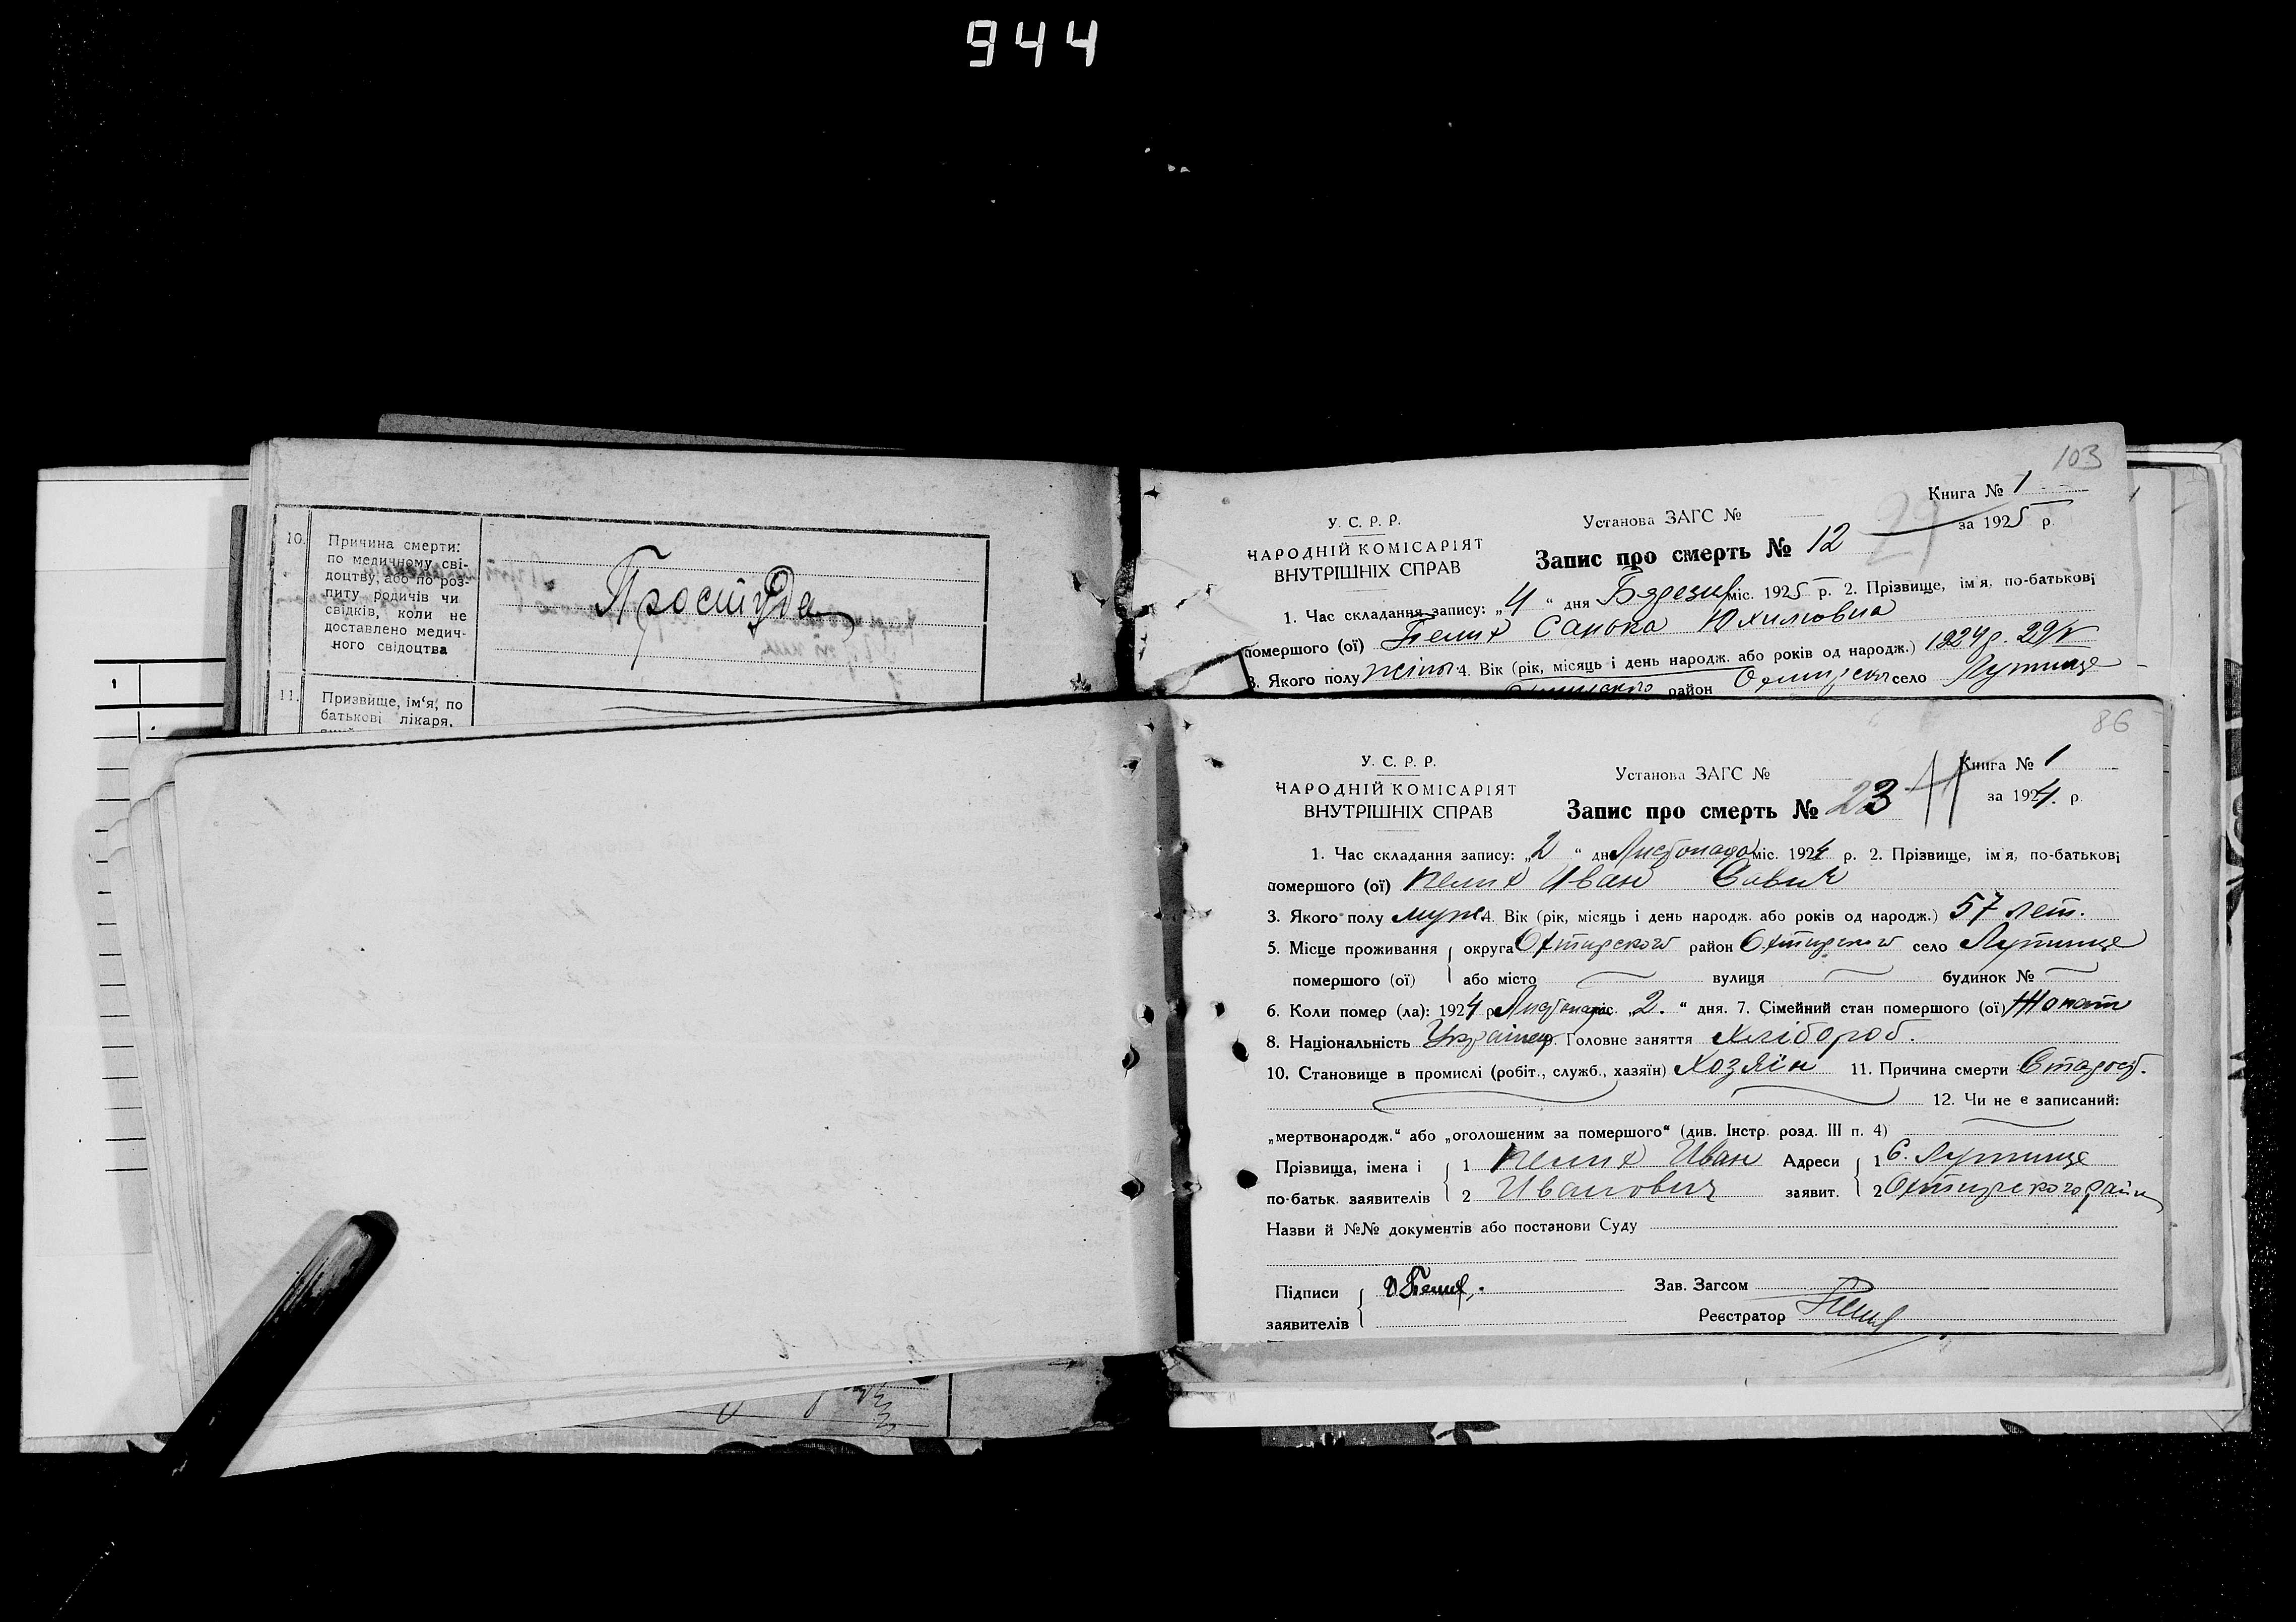 944
10. Причина смерти:
по медичному сві-
доцтву, або по роз-
питу родичів чи
свідків, коли не
доставлено медич-
ного свідоцтва
Простуда
11. Призвище, ім'я, по
батькові лікаря,
1
103
Книга № 1
У. С. Р. Р.
Установа ЗАГС №
за 1925 р.
НАРОДНІЙ КОМІСАРІЯТ
ВНУТРІШНІХ СПРАВ
Запис про смерть № 12
1. Час складання запису: „4 “ дня міс. 1925 р. 2. Прізвище, імя, по-батькові
помершого (ої) Пелих Санька Юхимовна
3. Якого полу жіноч 4. Вік (рік, місяць і день народж. або років од народж.) 1924 р. 29/V
район село Лутище
86
У. С. Р. Р.
Установа ЗАГС №
Книга № 1
НАРОДНІЙ КОМІСАРІЯТ
ВНУТРІШНІХ СПРАВ
Запис про смерть № 23
за 1924. р.
1. Час складання запису: „2 “ дня Листопада міс. 1924 р. 2. Прізвище, імя, по-батькові
помершого (ої) Пелих Иван Савич
3. Якого полу муж 4. Вік (рік, місяць і день народж. або років од народж.) 57 лет.
5. Місце проживання округа Охтирского район Охтирского село Лутище
помершого (ої) або місто вулиця будинок №
6. Коли помер (ла): 1924 р. Листопада міс. „2. “ дня. 7. Сімейний стан помершого (ої) Жонат
8. Національність Українец 9. Головне заняття Хлібороб.
10. Становище в промислі (робіт., служб., хазяїн) Хозяїн 11. Причина смерти Старост.
12. Чи не є записаний:
„мертвонародж.“ або „оголошеним за помершого“ (див. Інстр. розд. III п. 4)
Прізвища, імена і 1 Пелих Иван Адреси 1 С. Лутище
по-батьк. заявителів 2 Иванович заявит. 2 Охтирского райн
Назви й №№ документів або постанови Суду
Підписи И Пелих. Зав. Загсом
заявителів Реєстратор Пелих